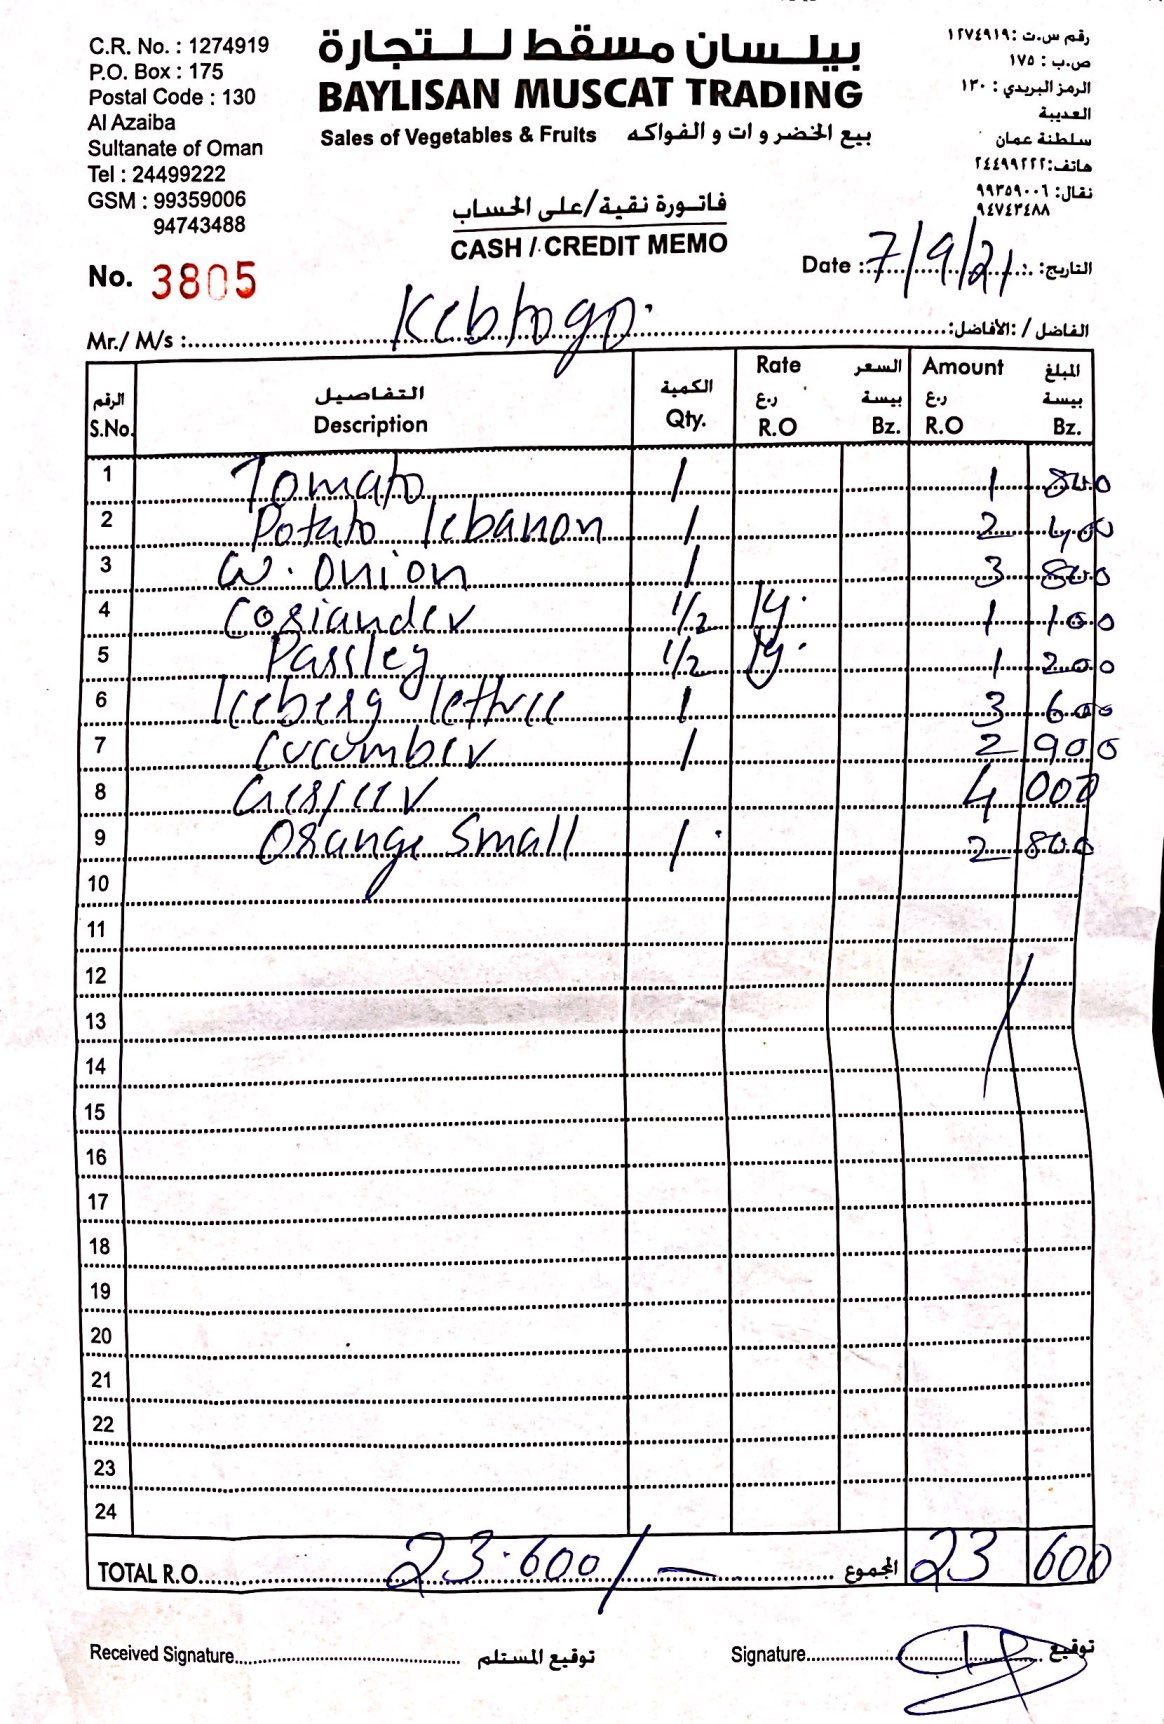 C.R. No. : 1274919
P.O. Box : 175
Postal Code : 130
Al Azaiba
Sultanate of Oman
Tel : 24499222
GSM : 99359006
94743488
بيلسان مسقط للتجارة
BAYLISAN MUSCAT TRADING
Sales of Vegetables & Fruits بيع الخضروات و الفواكه
رقم س.ت :١٢٧٤٩١٩
ص.ب : ١٧٥
الرمز البريدي : ١٣٠
العذيبة
سلطنة عمان
هاتف:٢٤٤٩٩٢٢٢
نقال: ٩٩٣٥٩٠٠٦
٩٤٧٤٣٤٨٨
فاتورة نقية/على الحساب
CASH / CREDIT MEMO
No. 3805
Date : 7/9/21 التاريخ:
Mr./ M/s : Kebtogo. الفاضل / الأفاضل:
الرقم التفاصيل الكمية Rate السعر Amount المبلغ
S.No. Description Qty. ر.ع R.O بيسة Bz. ر.ع R.O بيسة Bz.
1 Tomato 1 1 800
2 Potato lebanon 1 2 400
3 W. Onion 1 3 800
4 Coriander 1/2 1 100
5 Passley 1/2 1 200
6 Iceberg lettuce 1 3 600
7 Cucumber 1 2 900
8 4 000
9 Orange Small 1 2 800
10
11
12
13
14
15
16
17
18
19
20
21
22
23
24
TOTAL R.O. 23.600/- المجموع 23 600
Received Signature توقيع المستلم Signature توقيع